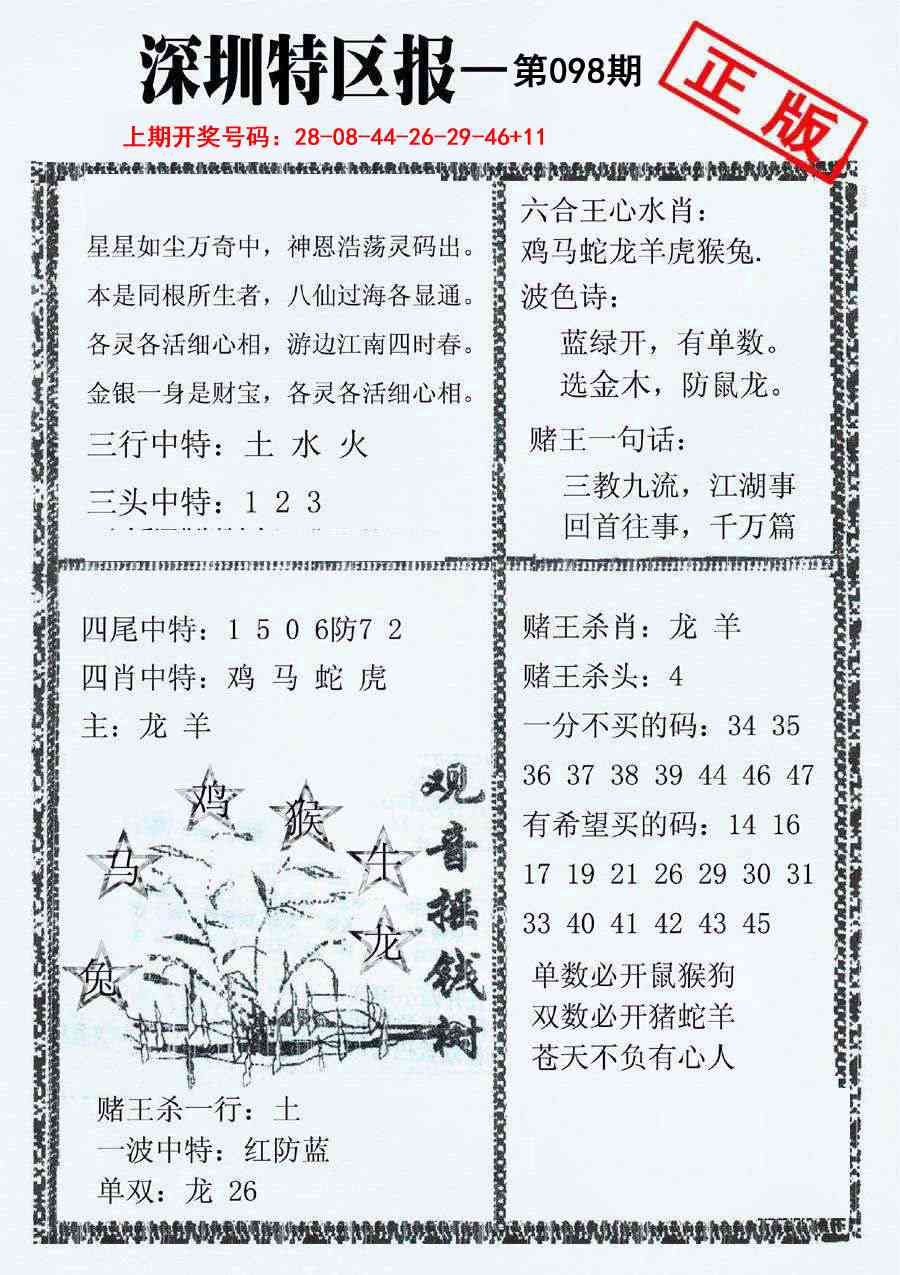 深圳特区报—第098期
正版
上期开奖号码：28-08-44-26-29-46+11
星星如尘万奇中，神恩浩荡灵码出。
本是同根所生者，八仙过海各显通。
各灵各活细心相，游边江南四时春。
金银一身是财宝，各灵各活细心相。
三行中特：土 水 火
三头中特：1 2 3
六合王心水肖：
鸡马蛇龙羊虎猴兔.
波色诗：
蓝绿开，有单数。
选金木，防鼠龙。
赌王一句话：
三教九流，江湖事
回首往事，千万篇
四尾中特：1 5 0 6防7 2
四肖中特：鸡 马 蛇 虎
主：龙 羊
鸡
猴
马
牛
龙
兔
观音摇钱树
赌王杀一行：土
一波中特：红防蓝
单双：龙 26
赌王杀肖：龙 羊
赌王杀头：4
一分不买的码：34 35
36 37 38 39 44 46 47
有希望买的码：14 16
17 19 21 26 29 30 31
33 40 41 42 43 45
单数必开鼠猴狗
双数必开猪蛇羊
苍天不负有心人